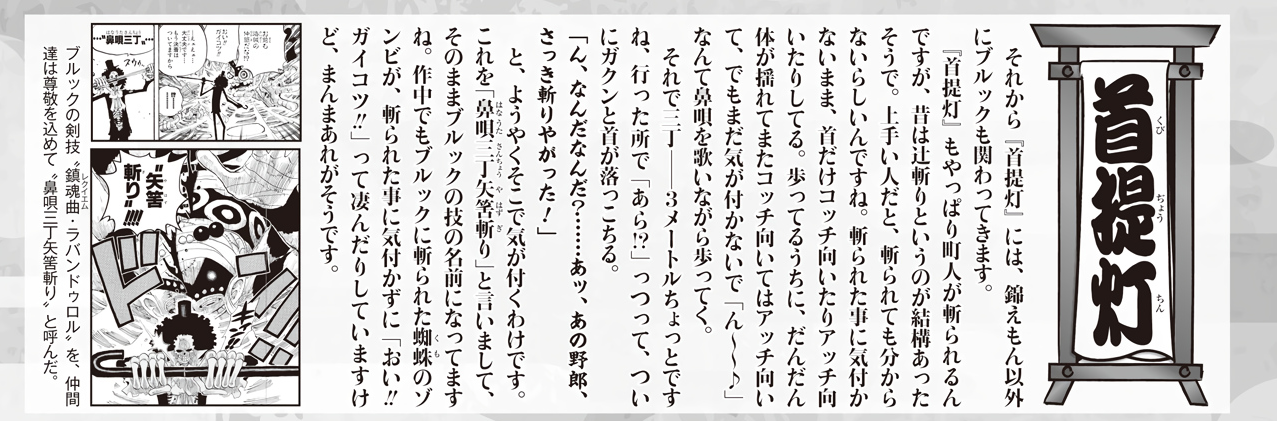 首提灯
くび ちょう ちん
それから『首提灯』には、錦えもん以外
にブルックも関わってきます。
『首提灯』もやっぱり町人が斬られるん
ですが、昔は辻斬りというのが結構あった
そうで。上手い人だと、斬られても分から
ないらしいんですね。斬られた事に気付か
ないまま、首だけコッチ向いたりアッチ向
いたりしてる。歩ってるうちに、だんだん
体が揺れてまたコッチ向いてはアッチ向い
て、でもまだ気が付かないで「ん〜〜♪」
なんて鼻唄を歌いながら歩ってく。
それで三丁――3メートルちょっとです
ね、行った所で「あら!?」っつって、つい
にガクンと首が落っこちる。
「ん、なんだなんだ?………あッ、あの野郎、
さっき斬りやがった!」
と、ようやくそこで気が付くわけです。
これを「鼻唄三丁矢筈斬り」と言いまして、
はなうた さんちょう や はず ぎ
そのままブルックの技の名前になってます
ね。作中でもブルックに斬られた蜘蛛のゾ
くも
ンビが、斬られた事に気付かずに「おい!!
ガイコツ!!」って凄んだりしていますけ
ど、まんまあれがそうです。
…“鼻唄三丁”…
はなうたさんちょう
スウィ
“矢筈
斬り”!!!!
ブルックの剣技“鎮魂曲・ラバンドゥロル”を、仲間
レクイエム
達は尊敬を込めて“鼻唄三丁矢筈斬り”と呼んだ。